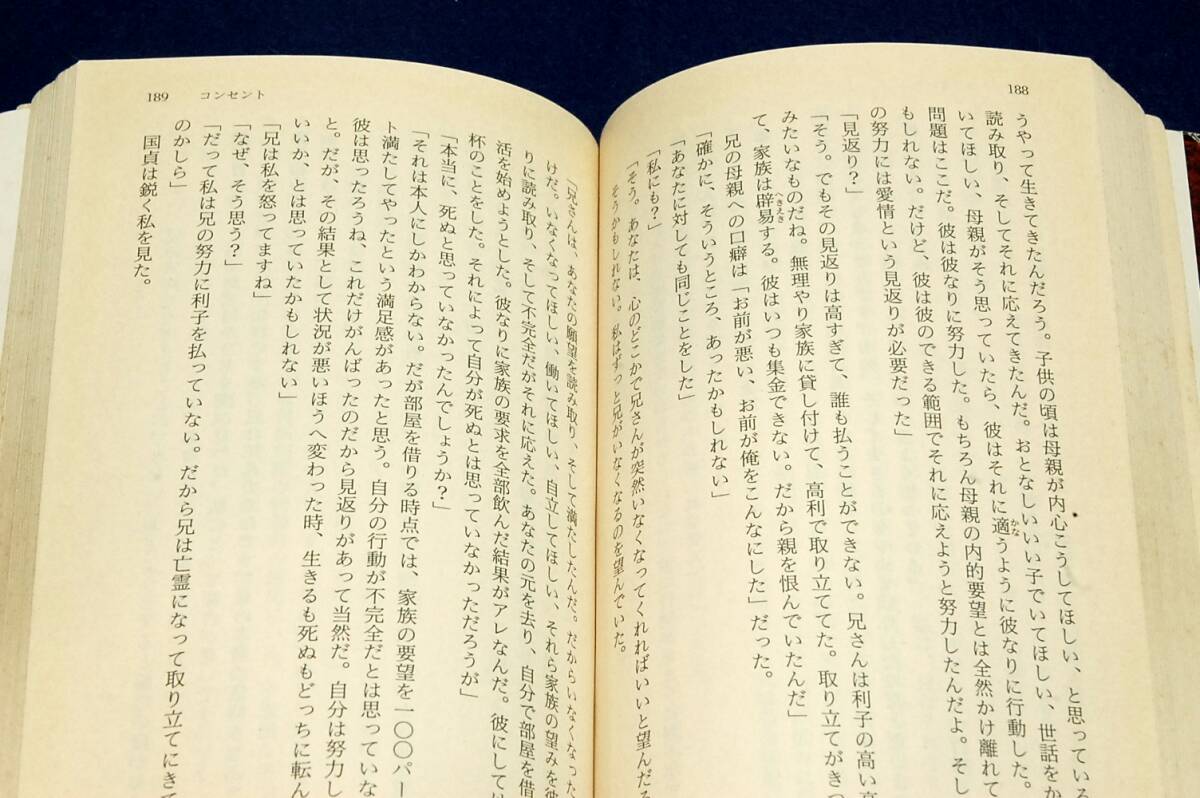 188
うやって生きてきたんだろう。子供の頃は母親が内心こうしてほしい、と思っている
読み取り、そしてそれに応えてきたんだ。おとなしいいい子でいてほしい、世話をか
いてほしい、母親がそう思っていたら、彼はそれに適うように彼なりに行動した。
かな
問題はここだ。彼は彼なりに努力した。もちろん母親の内的要望とは全然かけ離れて
もしれない。だけど、彼は彼のできる範囲でそれに応えようと努力したんだよ。そし
の努力には愛情という見返りが必要だった」
「見返り?」
「そう。でもその見返りは高すぎて、誰も払うことができない。兄さんは利子の高い高
みたいなものだね。無理やり家族に貸し付けて、高利で取り立ててた。取り立てがきつ
て、家族は辟易する。彼はいつも集金できない。だから親を恨んでいたんだ」
へきえき
兄の母親への口癖は「お前が悪い、お前が俺をこんなにした」だった。
「確かに、そういうところ、あったかもしれない」
「あなたに対しても同じことをした」
「私にも?」
「そう。あなたは、心のどこかで兄さんが突然いなくなってくれればいいと望んだろ
そうかもしれない。私はずっと兄がいなくなるのを望んでいた。
189 コンセント
「兄さんは、あなたの願望を読み取り、そして満たしたんだ。だからいなくなった
けだ。いなくなってほしい、働いてほしい、自立してほしい、それら家族の望みを彼
りに読み取り、そして不完全だがそれに応えた。あなたの元を去り、自分で部屋を借
活を始めようとした。彼なりに家族の要求を全部飲んだ結果がアレなんだ。彼にしては
杯のことをした。それによって自分が死ぬとは思っていなかっただろうが」
「本当に、死ぬと思っていなかったんでしょうか?」
「それは本人にしかわからない。だが部屋を借りる時点では、家族の要望を一〇〇パー
ト満たしてやったという満足感があったと思う。自分の行動が不完全だとは思っていな
彼は思ったろうね、これだけがんばったのだから見返りがあって当然だ。自分は努力し
と。だが、その結果として状況が悪いほうへ変わった時、生きるも死ぬもどっちに転ん
いいか、とは思っていたかもしれない」
「兄は私を怒ってますね」
「なぜ、そう思う?」
「だって私は兄の努力に利子を払っていない。だから兄は亡霊になって取り立てにきて
のかしら」
国貞は鋭く私を見た。